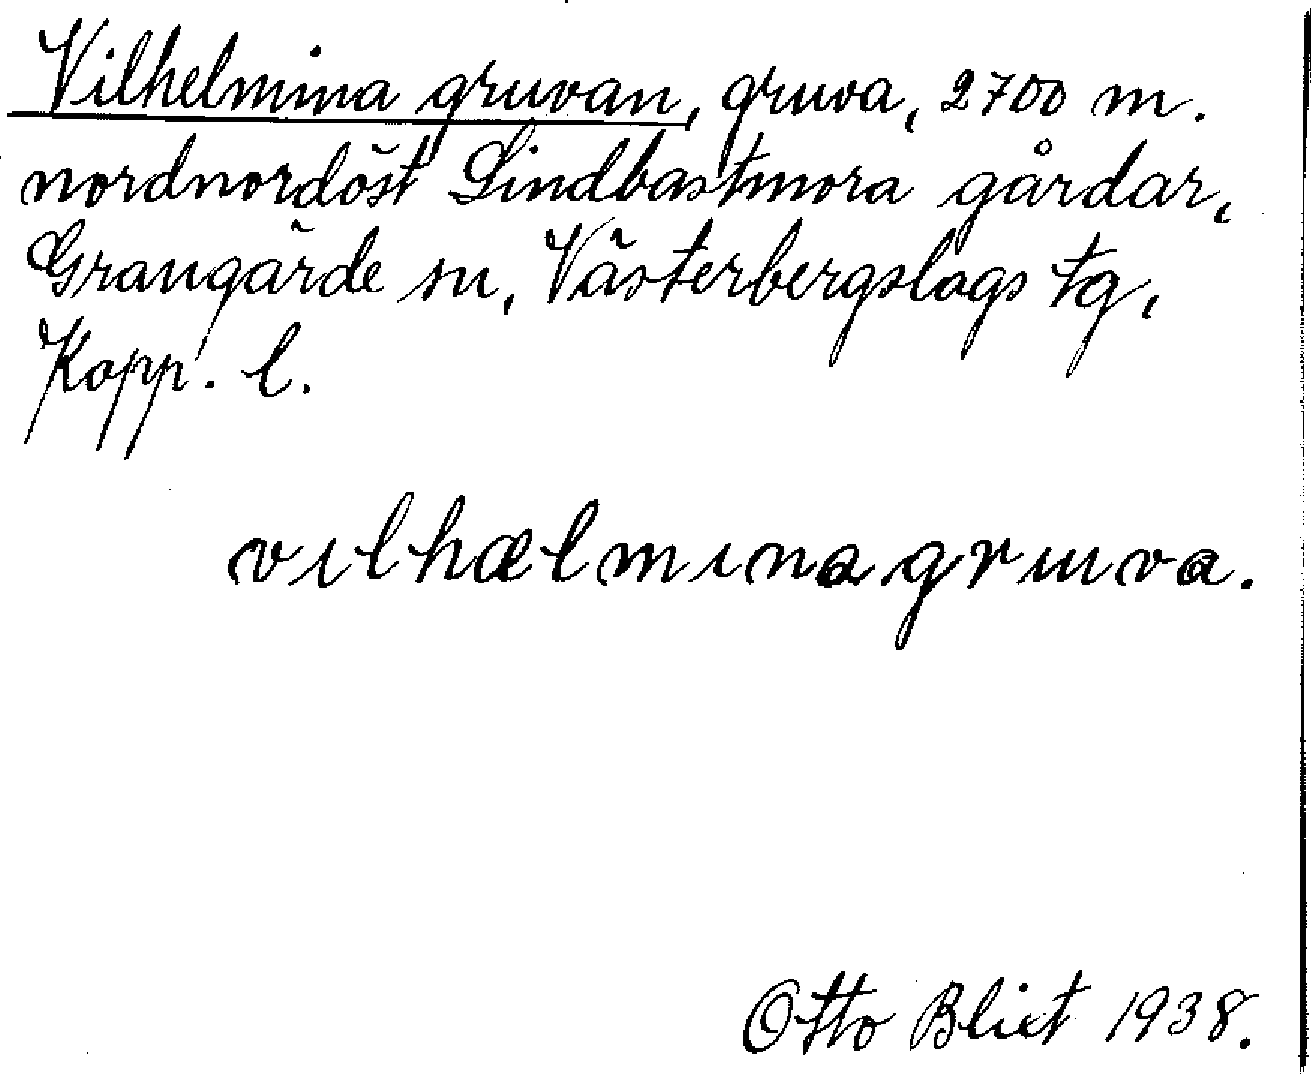 Vilhelmina gruvan, gruva, 2700 m.
nordnordöst Lindbastmora gårdar,
Grangärde sn, Västerbergslags tg,
Kopp. l.
vilhælmınagruva.
Otto Blixt 1938.